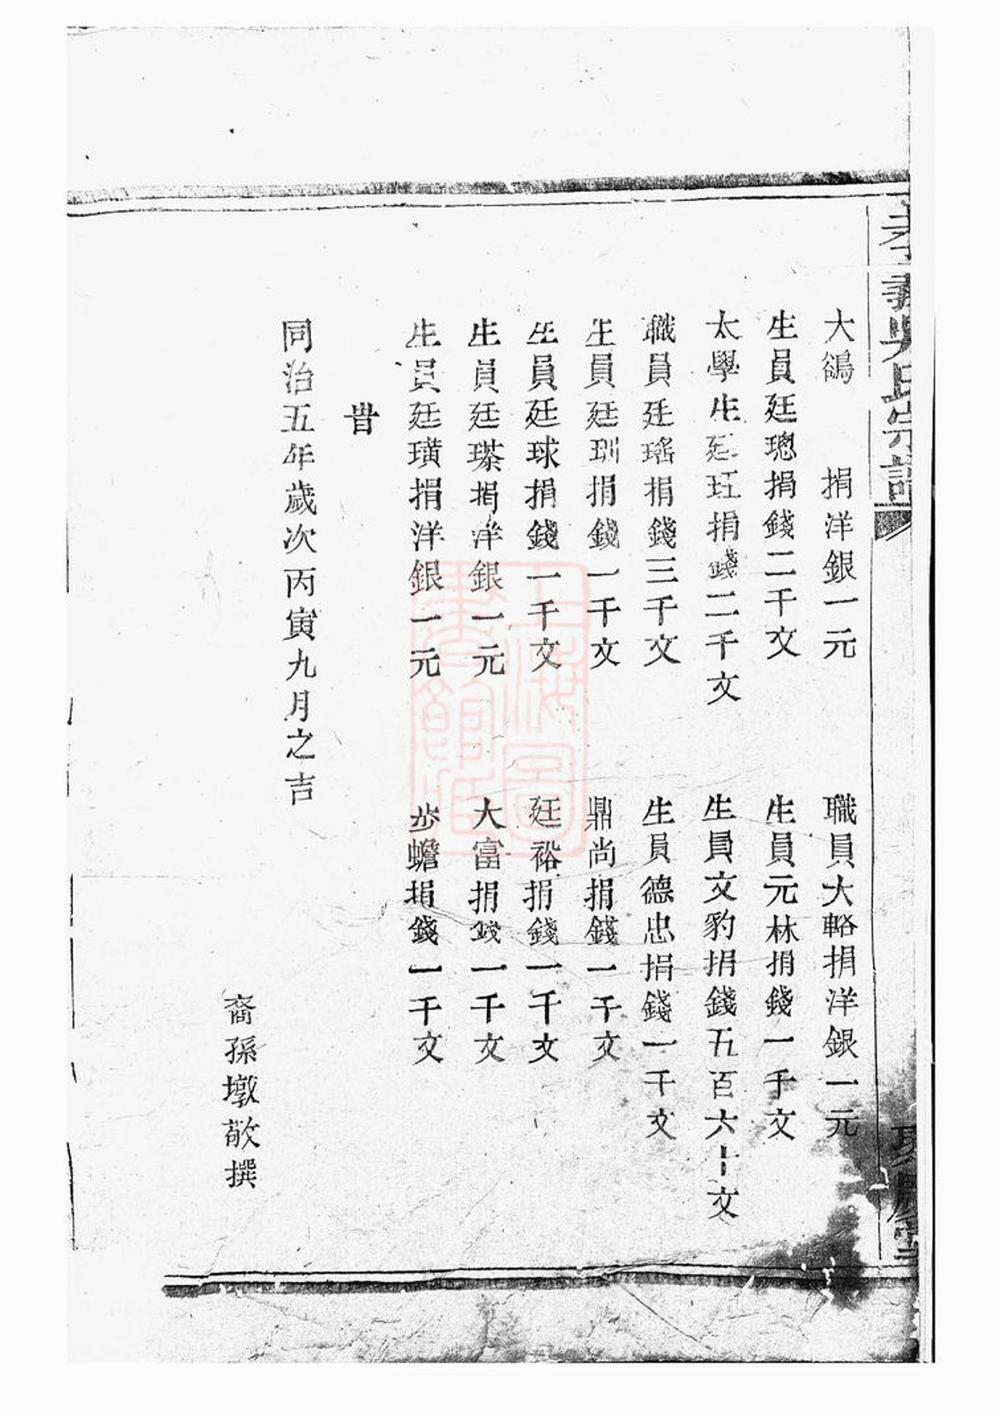 孝義吳氏宗譜
聚慶堂
大鵅 捐洋銀一元 職員大輅捐洋銀一元
生員廷璁捐錢二千文 生員元林捐錢一千文
太學生廷玨捐錢二千文 生員文豹捐錢五百六十文
職員廷瑤捐錢三千文 生員德忠捐錢一千文
生員廷珋捐錢一千文 鼎尚捐錢一千文
生員廷球捐錢一千文 廷裕捐錢一千文
生員廷瑹捐洋銀一元 大富捐錢一千文
生員廷璜捐洋銀一元 步蟾捐錢一千文
旹
同治五年歲次丙寅九月之吉
裔孫墩敬撰
上海圖
書館藏